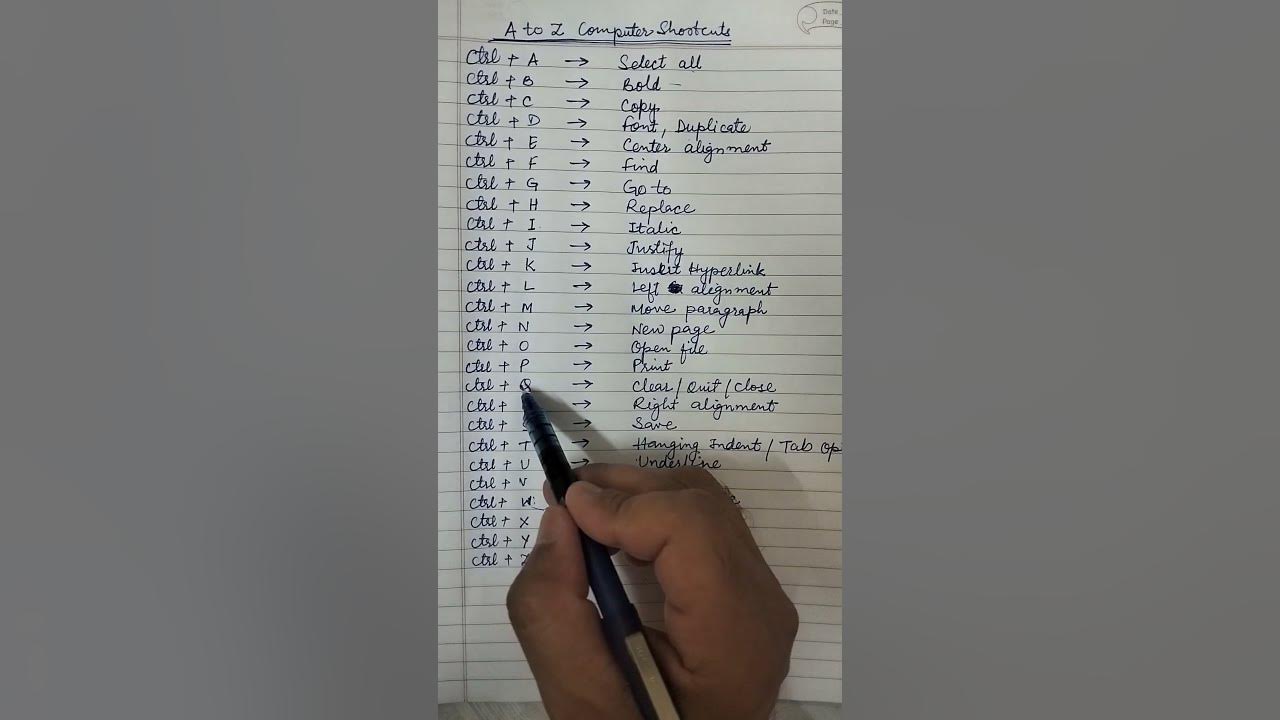 Date
Page
A to Z Computer Shootcuts
Ctrl + A → Select all
Ctrl + B → Bold -
Ctrl + C → Copy
Ctrl + D → Font, Duplicate
Ctrl + E → Center alignment
Ctrl + F → Find
Ctrl + G → Go to
Ctrl + H → Replace
Ctrl + I → Italic
Ctrl + J → Justify
Ctrl + K → Insert Hyperlink
Ctrl + L → Left alignment
Ctrl + M → Move paragraph
Ctrl + N → New page
Ctrl + O → Open file
Ctrl + P → Print
Ctrl + Q → Clear/Quit/Close
Ctrl + → Right alignment
Ctrl + → Save
Ctrl + T → Hanging Indent / Tab Op
Ctrl + U → Underline
Ctrl + V
Ctrl + W
Ctrl + X
Ctrl + Y
Ctrl + Z